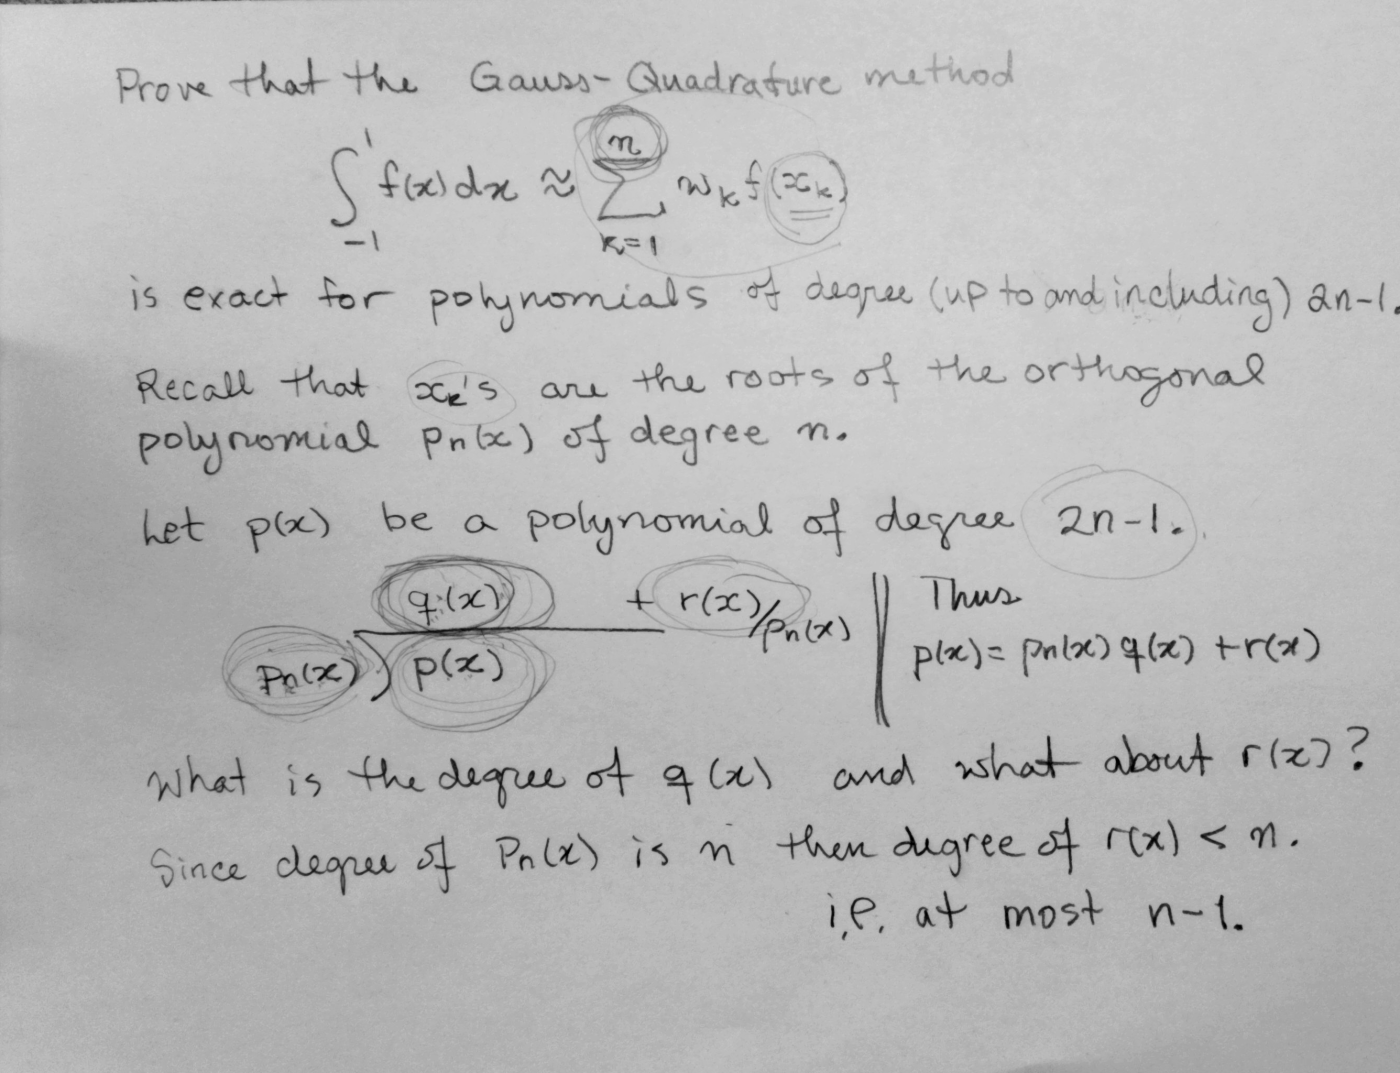 Prove that the Gauss-Quadrature method
∫_{-1}^{1} f(x) dx ≈ ∑_{k=1}^{n} w_k f(x_k)
is exact for polynomials of degree (up to and including) 2n-1.
Recall that x_k's are the roots of the orthogonal
polynomial p_n(x) of degree n.
Let p(x) be a polynomial of degree 2n-1.
q(x) + r(x)/p_n(x)
p_n(x) ) p(x)
Thus
p(x) = p_n(x) q(x) + r(x)
What is the degree of q(x) and what about r(x)?
Since degree of P_n(x) is n then degree of r(x) < n.
i.e. at most n-1.